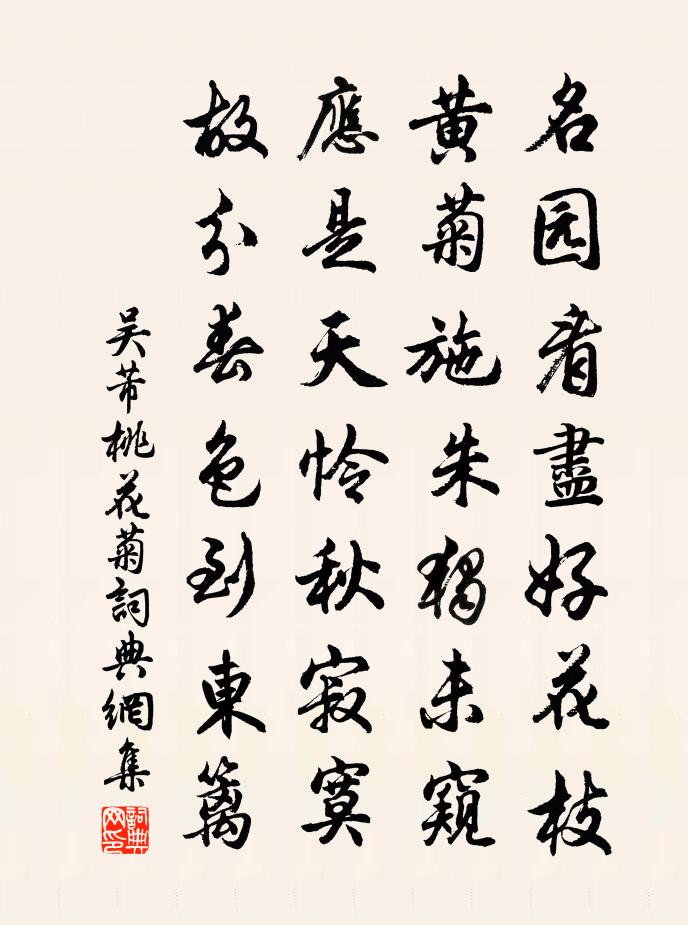 名园看盡好花枝
黄菊施朱獨未窺
應是天怜秋寂寞
故分春色到東籬
吴芾桃花菊詞典網集
詞典网印